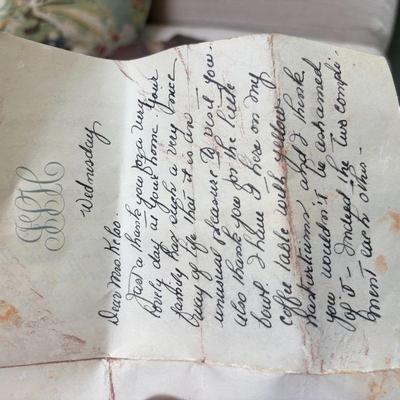 Wednesday
Dear Mrs. Kelso.
Just a thank you for a very
lovely day at your home. Your
family has such a very nice
way of life that it is an
unusual pleasure to visit you.
also thank you for the little
bowl. I have it here on my
coffee table with yellow
nasturtiums and I think
you wouldn't be ashamed
of it - indeed the two compli-
ment each other -